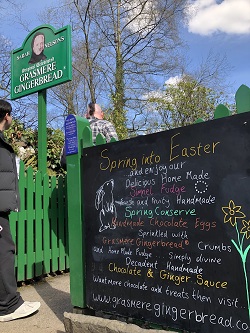 SARAH NELSON'S
GRASMERE
GINGERBREAD
Spring into Easter
and enjoy our
Delicious Home Made
Simnel Fudge
and fruity Handmade
Spring Conserve
Handmade Chocolate Eggs
Sprinkled with
Grasmere Gingerbread® Crumbs
and Home Made Simply divine
Decadent Handmade
Chocolate & Ginger Sauce
Want more chocolate and treats then visit
www.grasmeregingerbread.co.uk